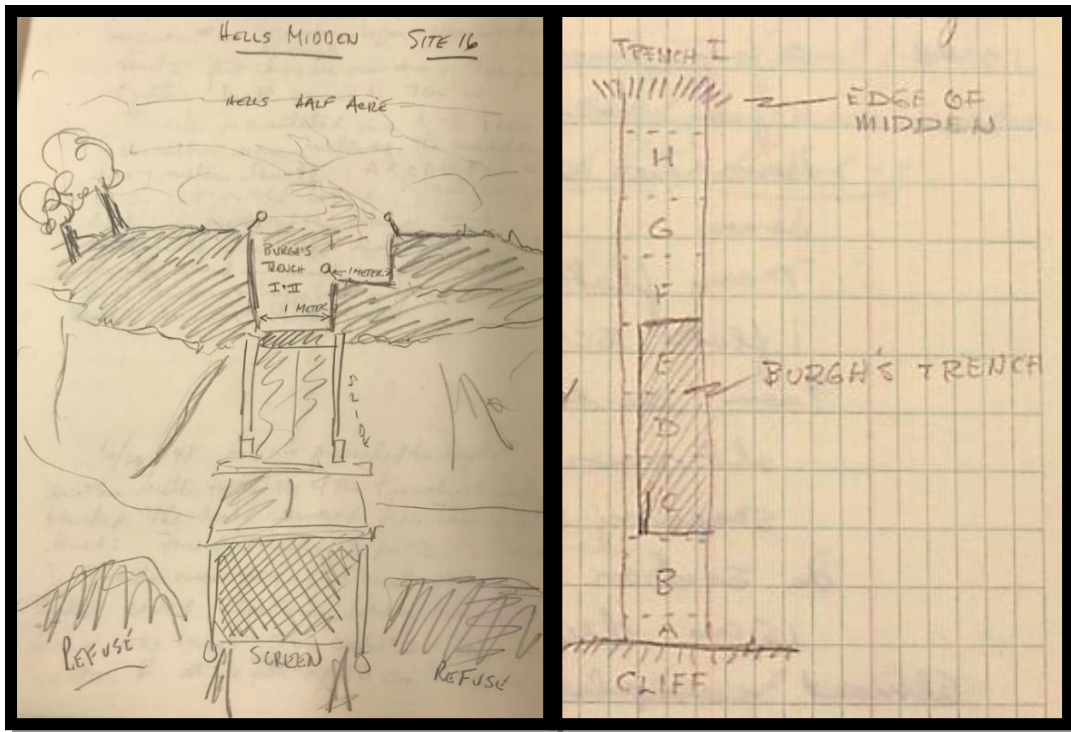 HELLS MIDDEN SITE 16
HELLS HALF ACRE
BURGH'S
TRENCH
I+II
1 METER
1 METER
SLIDE
REFUSE
SCREEN
REFUSE
TRENCH I
EDGE OF
MIDDEN
H
G
F
E
BURGH'S TRENCH
D
C
B
A
CLIFF